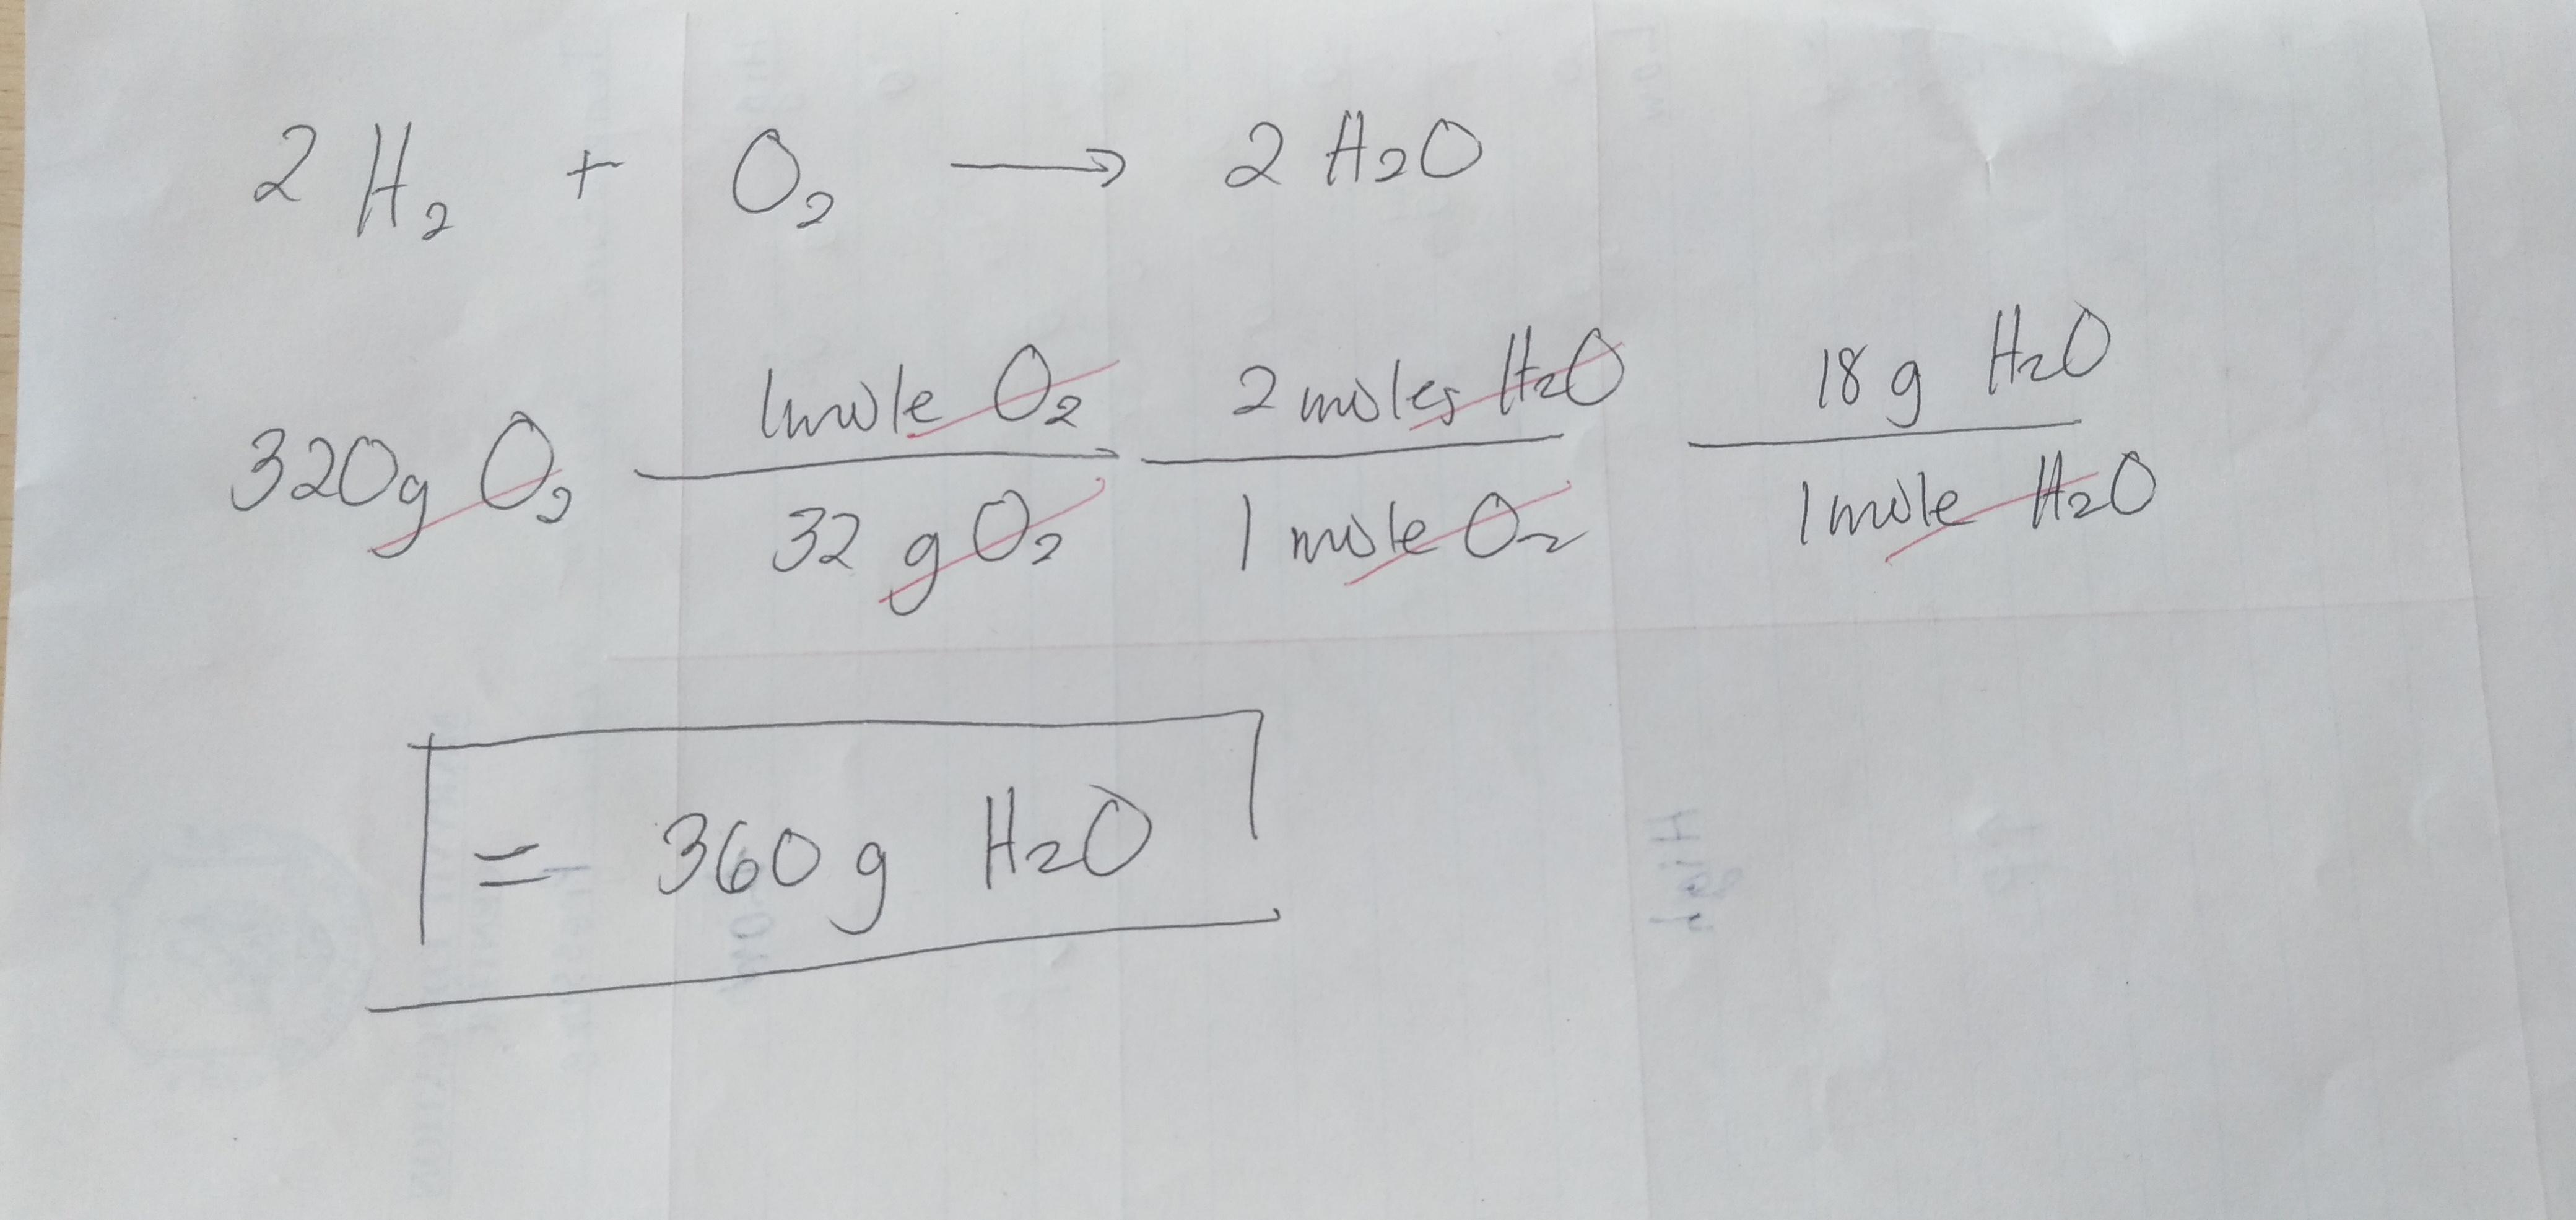 2 H₂ + O₂ → 2 H₂O
320g O₂ 1mole O₂ / 32 g O₂ 2 moles H₂O / 1 mole O₂ 18 g H₂O / 1 mole H₂O
= 360 g H₂O